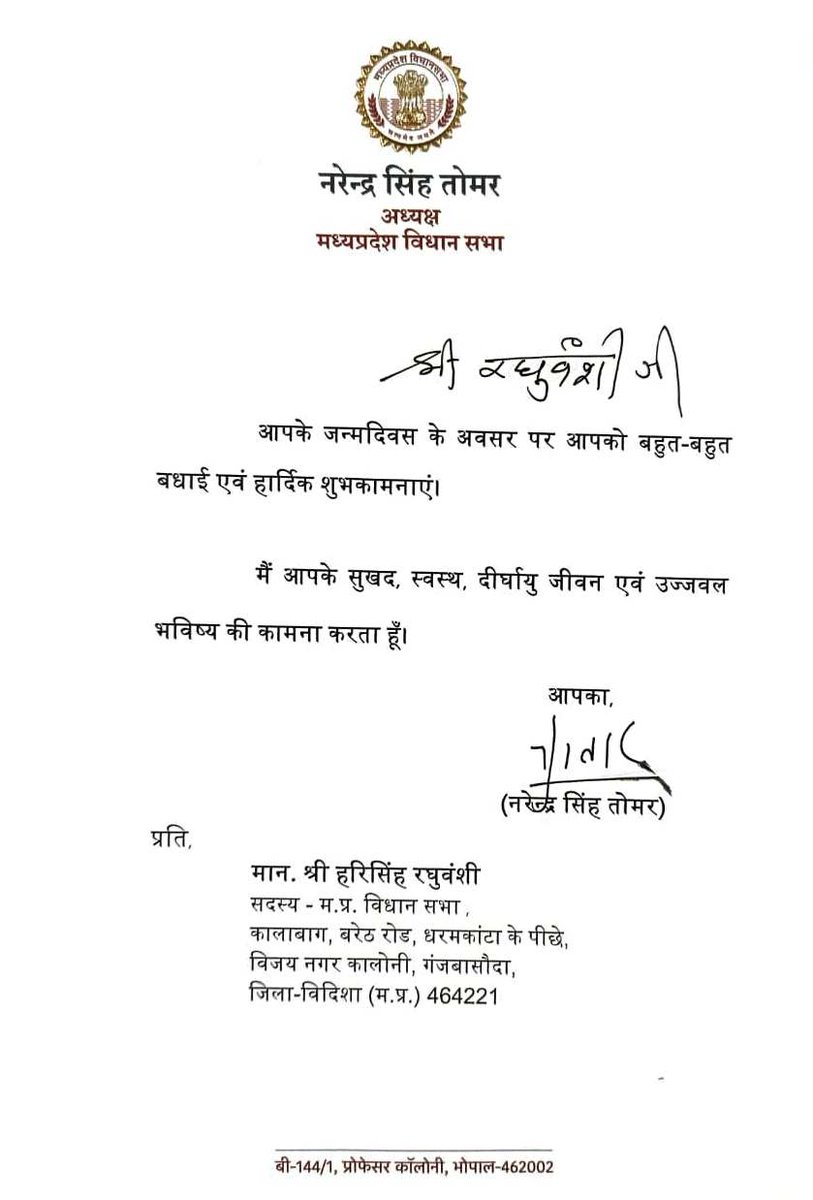 मध्यप्रदेश विधानसभा
सत्यमेव जयते
नरेन्द्र सिंह तोमर
अध्यक्ष
मध्यप्रदेश विधान सभा
श्री रघुवंशी जी
आपके जन्मदिवस के अवसर पर आपको बहुत-बहुत
बधाई एवं हार्दिक शुभकामनाएं।
मैं आपके सुखद, स्वस्थ, दीर्घायु जीवन एवं उज्जवल
भविष्य की कामना करता हूँ।
आपका,
(नरेन्द्र सिंह तोमर)
प्रति,
मान. श्री हरिसिंह रघुवंशी
सदस्य - म.प्र. विधान सभा,
कालाबाग, बरेठ रोड, धरमकांटा के पीछे,
विजय नगर कालोनी, गंजबासौदा,
जिला-विदिशा (म.प्र.) 464221
बी-144/1, प्रोफेसर कॉलोनी, भोपाल-462002